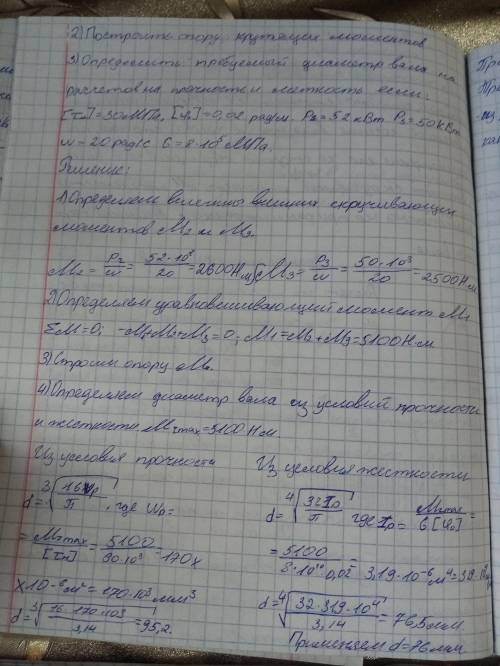 2) Построить эпюру крутящих моментов
3) Определить требуемый диаметр вала из
расчетов на прочность и жесткость если:
[τк]=30мПа, [φ₀]=0,02 рад/м. P₂=52 кВт P₃=50кВт
ω=20 рад/с G=8·10⁵ МПа.
Решение:
1) Определяем величины внешних скручивающих
моментов M₂ и M₃.
M₂ = P₂/ω = 52·10³/20 = 2600Нм; M₃ = P₃/ω = 50·10³/20 = 2500Нм
2) Определяем уравновешивающий момент M₁
ΣM=0; -M₁+M₂+M₃=0; M₁=M₂+M₃=5100Н·м
3) Строим эпюру Mz
4) Определяем диаметр вала из условий прочности
и жесткости Mzmax=5100Нм.
Из условия прочности
d=³√(16Wp/П), где Wp=
=Mzmax/[τк]=5100/30·10³=170х
х10⁻⁶м³=170·10³мм³
d=³√(16·170·103/3,14)=95,2
Из условия жесткости
d=⁴√(32Ip/П) где Ip=Mzmax/G[φ₀]=
=5100/8·10¹⁰·0,02=3,19·10⁻⁶м⁴=319·10⁴
d=⁴√(32·319·10⁴/3,14)=76,5мм
Принимаем d=76мм